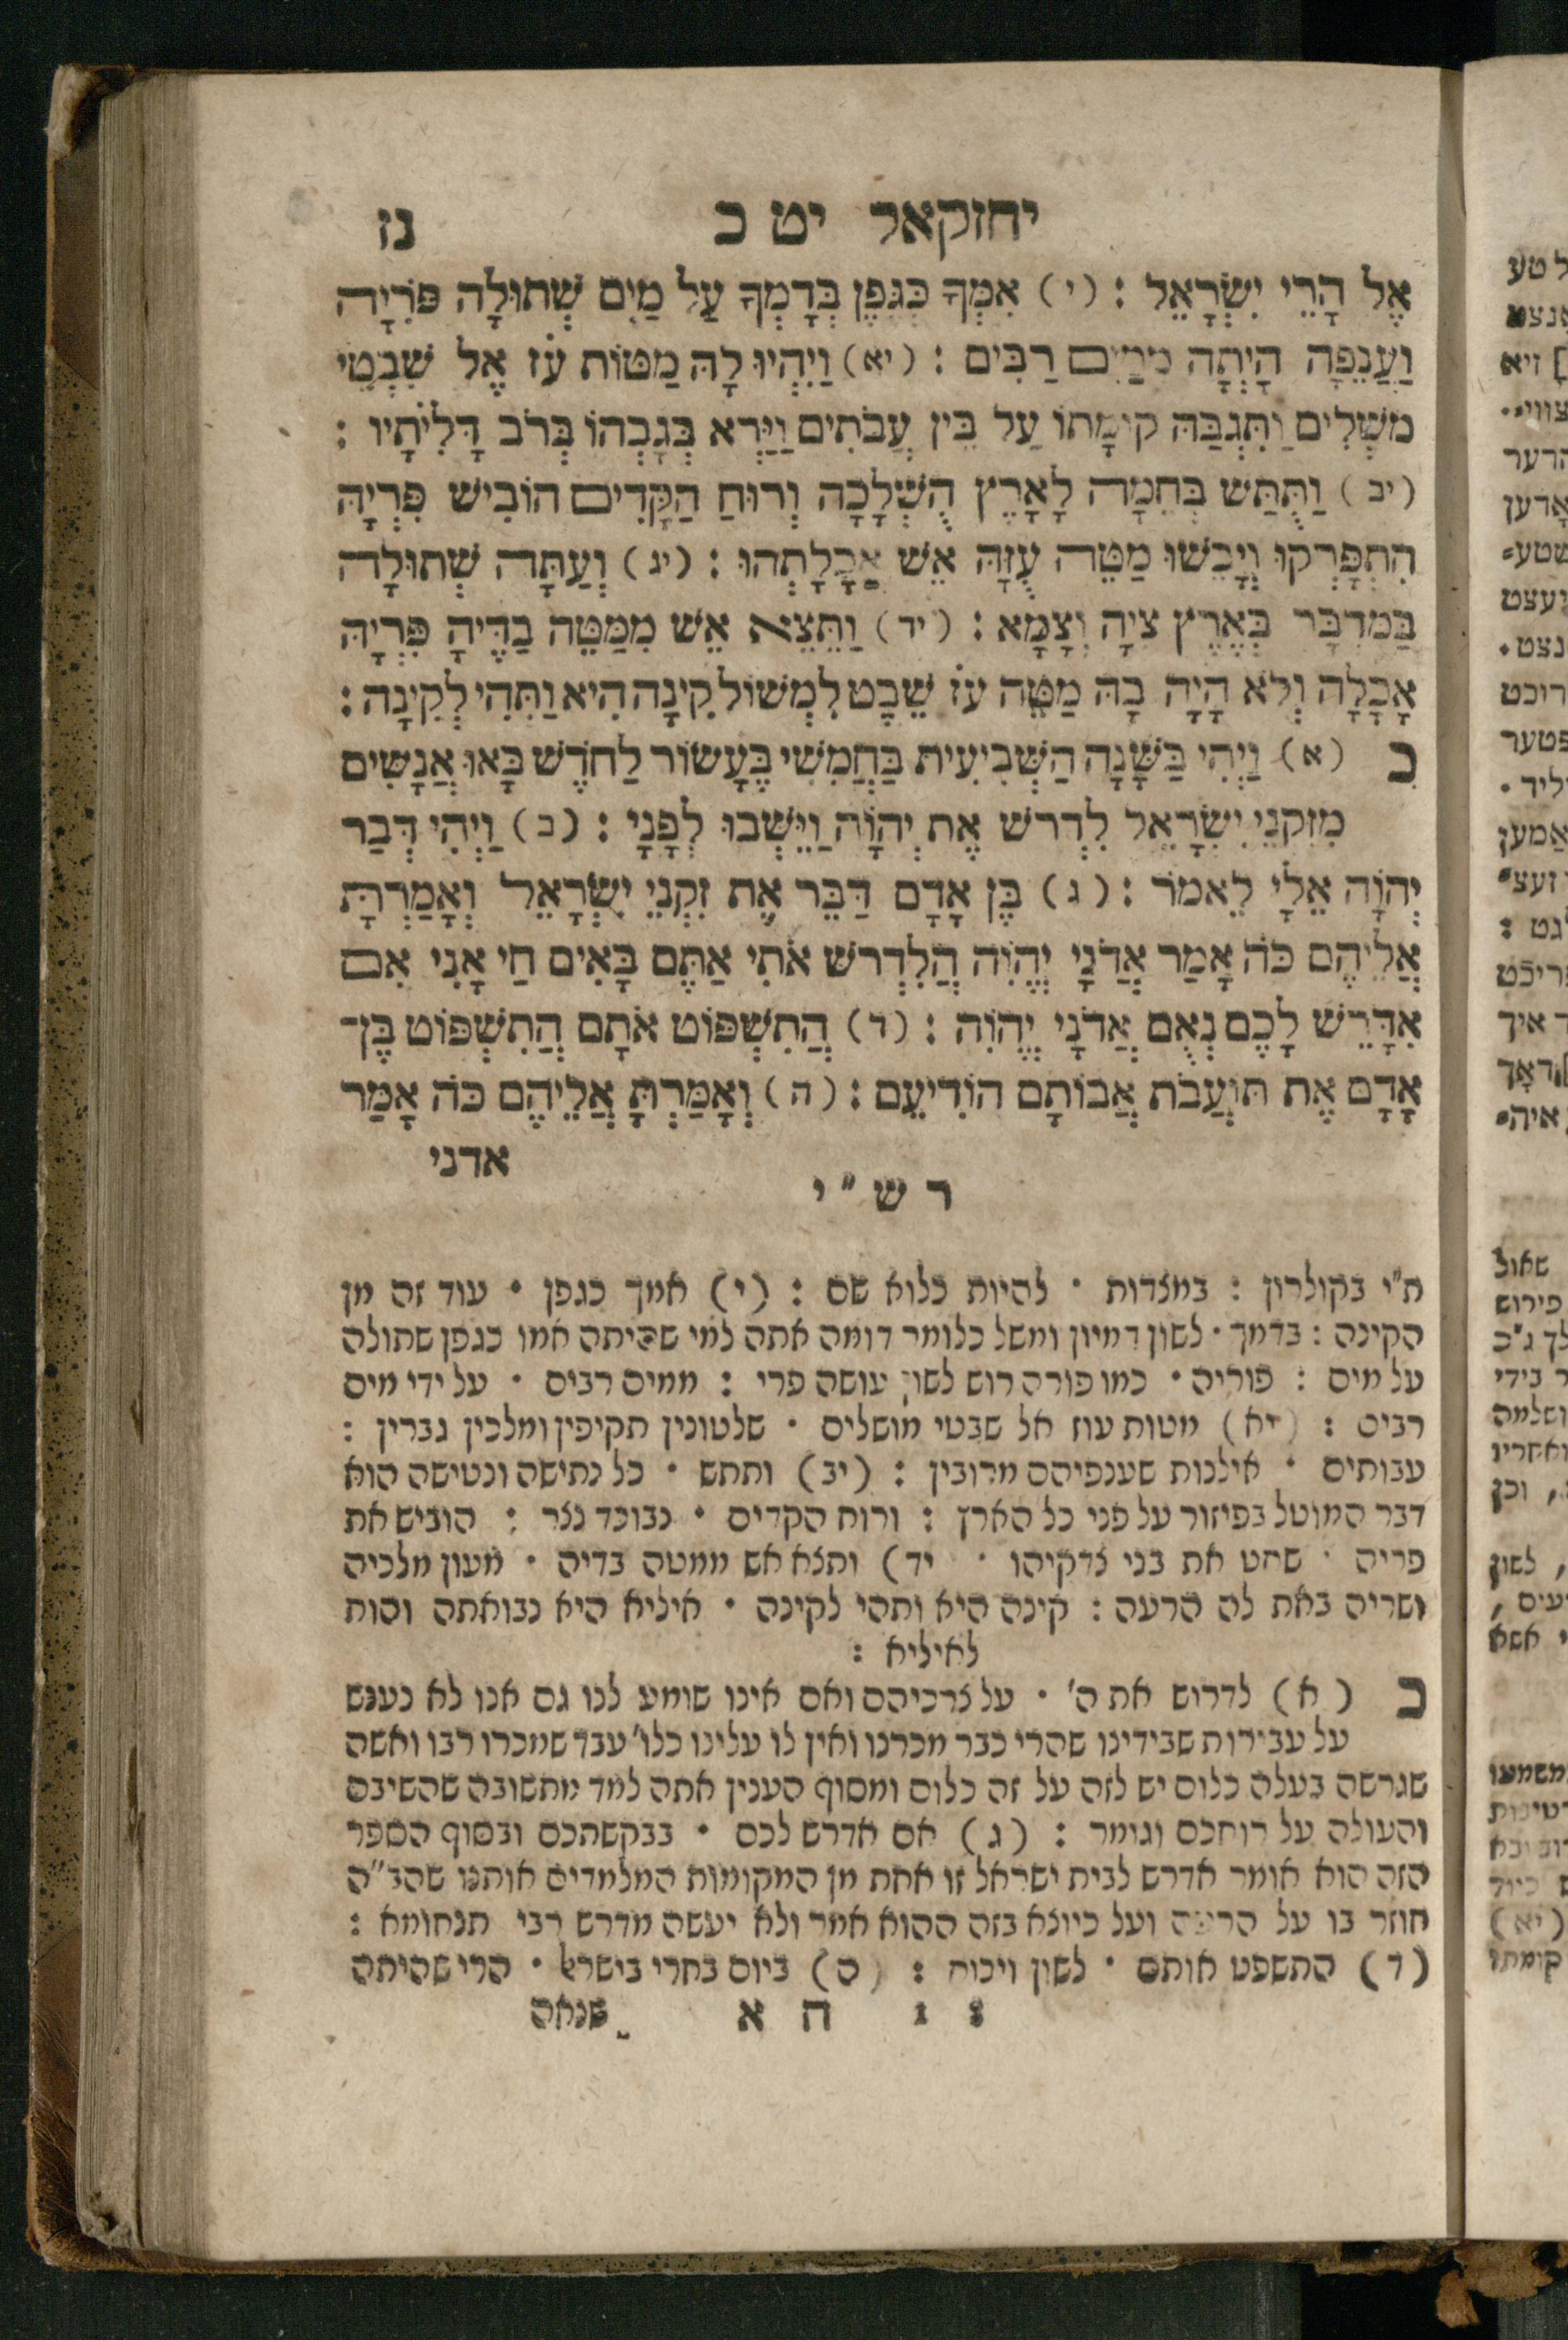 יחזקאל יט כ
נז
אֶל הָרֵי יִשְׂרָאֵל : (י) אִמְּךָ כַּגֶּפֶן בְּדָמְךָ עַל מַיִם שְׁתוּלָה פֹּרִיָה
וַעֲנֵפָה הָיְתָה מִמַיִם רַבִּים : (יא) וַיִהְיוּ לָהּ מַטּוֹת עֹז אֶל שִׁבְטֵי
משְׁלִים וַתִּגְבַּהּ קוֹמָתוֹ עַל בֵּין עֲבֹתִים וַיֵּרָא בְגָבְהוֹ בְּרֹב דָּלִיֹתָיו :
(יב) וַתֻּתַּשׁ בְּחֵמָה לָאָרֶץ הֻשְׁלָכָה וְרוּחַ הַקָּדִים הוֹבִישׁ פִּרְיָהּ
הִתְפָּרְקוּ וְיָבֵשׁוּ מַטֵּה עֻזָּהּ אֵשׁ אֲכָלָתְהוּ : (יג) וְעַתָּה שְׁתוּלָה
בַּמִדְבָּר בְּאֶרֶץ צִיָה וְצָמָא : (יד) וַתֵּצֵא אֵשׁ מִמַּטֵּה בַדֶּיהָ פִּרְיָהּ
אָכָלָה וְלֹא הָיָה בָהּ מַטֵּה עֹז שֵׁבֶט לִמְשׁוֹל קִינָה הִיא וַתְּהִי לְקִינָה :
כ (א) וַיְהִי בַּשָּׁנָה הַשְּׁבִיעִית בַּחֲמִשִׁי בֶּעָשׂוֹר לַחֹדֶשׁ בָּאוּ אֲנָשִׁים
מִזִקְנֵי יִשְׂרָאֵל לִדְרשׁ אֶת יְהוָֹה וַיֵּשְׁבוּ לְפָנָי : (ב) וַיְהִי דְבַר
יְהוָֹה אֵלַי לֵאמֹר : (ג) בֶּן אָדָם דַּבֵּר אֶת זִקְנֵי יִשְׂרָאֵל וְאָמַרְתָּ
אֲלֵיהֶם כֹּה אָמַר אֲדֹנָי יֱהוִֹה הֲלִדְרשׁ אֹתִי אַתֶּם בָּאִים חַי אָנִי אִם
אִדָּרֵשׁ לָכֶם נְאֻם אֲדֹנָי יֱהוִֹה : (ד) הֲתִשְׁפּוֹט אֹתָם הֲתִשְׁפּוֹט בֶּן־
אָדָם אֶת תּוֹעֲבֹת אֲבוֹתָם הוֹדִיעֵם : (ה) וְאָמַרְתָּ אֲלֵיהֶם כֹּה אָמַר
אדני
רש״י
ת״י בקולרון : במצדות · להיות כלוא שם : (י) אמך כגפן · עוד זה מן
הקינה : בדמך · לשון דמיון ומשל כלומר דומה אתה למי שהיתה אמו כגפן שתולה
על מים : פוריה · כמו פורה רוש לשון עושה פרי : ממים רבים · על ידי מים
רבים : (יא) מטות עוז אל שבטי מושלים · שלטונין תקיפין ומלכין גברין :
עבותים · אילנות שענפיהם מרובין : (יב) ותתש · כל נתישה ונטישה הוא
דבר המוטל בפיזור על פני כל הארץ : ורוח הקדים · נבוכד נצר : הוביש את
פריה · שחט את בני צדקיהו · יד) ותצא אש ממטה בדיה · מעון מלכיה
ושריה באת לה הרעה : קינה היא ותהי לקינה · איליא היא נבואתה והות
לאיליא :
כ (א) לדרוש את ה׳ · על צרכיהם ואם אינו שומע לנו גם אנו לא נענש
על עבירות שבידינו שהרי כבר מכרנו ואין לו עלינו כלו׳ עבד שמכרו רבו ואשה
שגרשה בעלה כלום יש לזה על זה כלום ומסוף הענין אתה למד מתשובה שהשיבם
והעולה על רוחכם וגומר : (ג) אם אדרש לכם · בבקשתכם ובסוף הספר
הזה הוא אומר אדרש לבית ישראל זו אחת מן המקומות המלמדים אותנו שהב״ה
חוזר בו על הרעה ועל כיוצא בזה ההוא אמר ולא יעשה מדרש רבי תנחומא :
(ד) התשפט אותם · לשון ויכוח : (ה) ביום בחרי בישראל · הרי שהיתה
ח א
שנאה